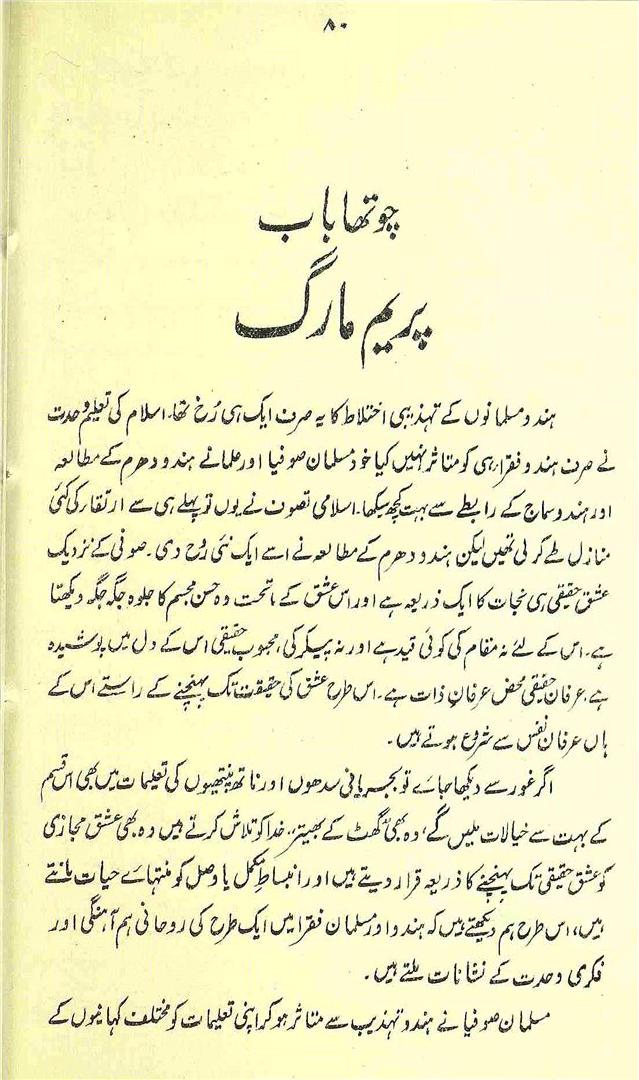 ۸۰
چوتھا باب
پریم مارگ
ہندو مسلمانوں کے تہذیبی اختلاط کا یہ صرف ایک ہی رُخ تھا۔ اسلام کی تعلیم وحدت
نے صرف ہندو فقرا ہی کو متاثر نہیں کیا خود مسلمان صوفیا اور علمانے ہندو دھرم کے مطالعہ
اور ہندو سماج کے رابطے سے بہت کچھ سیکھا۔ اسلامی تصوف نے یوں تو پہلے ہی سے ارتقار کی کئی
منازل طے کر لی تھیں لیکن ہندو دھرم کے مطالعہ نے اسے ایک نئی روح دی۔ صوفی کے نزدیک
عشق حقیقی ہی نجات کا ایک ذریعہ ہے اور اس عشق کے ماتحت وہ حسن مجسم کا جلوہ جگہ جگہ دیکھتا
ہے۔ اس کے لئے نہ مقام کی کوئی قید ہے اور نہ پیکر کی، محبوب حقیقی اس کے دل میں پوشیدہ
ہے۔ عرفان حقیقی محض عرفانِ ذات ہے۔ اس طرح عشق کی حقیقت تک پہنچنے کے راستے اس کے
ہاں عرفان نفس سے شروع ہوتے ہیں۔
اگر غور سے دیکھا جائے تو بجریانی سدھوں اور ناتھ پنتھیوں کی تعلیمات میں بھی اس قسم
کے بہت سے خیالات ملیں گے، وہ بھی "گھٹ کے بھیتر" خدا کو تلاش کرتے ہیں وہ بھی عشق مجازی
کو عشق حقیقی تک پہنچنے کا ذریعہ قرار دیتے ہیں اور انبساطِ مکمل یا وصل کو منتہائے حیات مانتے
ہیں، اس طرح ہم دیکھتے ہیں کہ ہندو اور مسلمان فقرا میں ایک طرح کی روحانی ہم آہنگی اور
فکری وحدت کے نشانات ملتے ہیں۔
مسلمان صوفیا نے ہندو تہذیب سے متاثر ہو کر اپنی تعلیمات کو مختلف کہانیوں کے